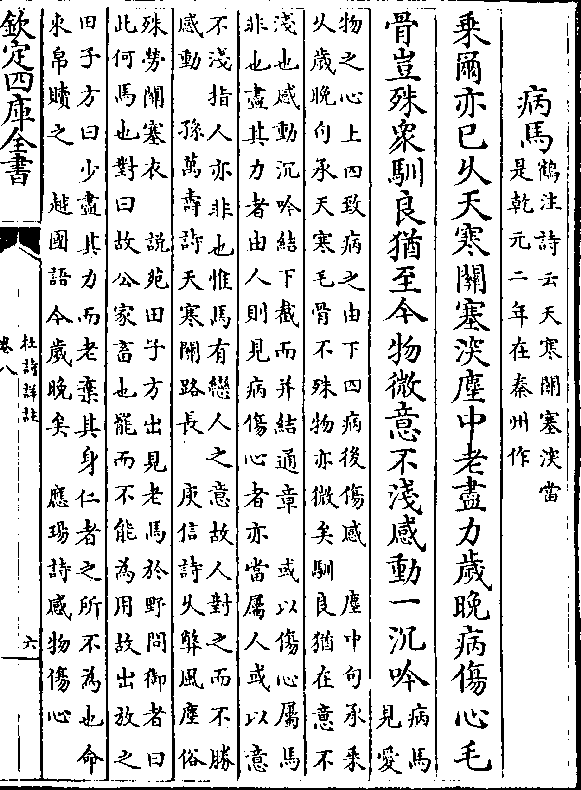 病馬
鶴注詩云天寒關塞深當
是乾元二年在秦州作
乘爾亦已久天寒關塞深塵中老盡力歲晚病傷心毛
骨豈殊衆馴良猶至今物微意不淺感動一沉吟
病馬
見愛
物之心上四致病之由下四病後傷感　塵中句承乘
久歲晚句承天寒毛骨不殊物亦微矣馴良猶在意不
淺也感動沉吟結下截而并結通章　或以傷心屬馬
非也盡其力者由人則見病傷心者亦當屬人或以意
不淺指人亦非也惟馬有戀人之意故人對之而不勝
感動　孫萬壽詩天寒關路長　庾信詩久弊風塵俗
殊勞關塞衣　說苑田子方出見老馬於野問御者曰
此何馬也對曰故公家畜也罷而不能為用故出放之
田子方曰少盡其力而老棄其身仁者之所不為也命
束帛贖之　越國語今歲晚矣　應瑒詩感物傷心
欽定四庫全書
杜詩詳註
卷八
六